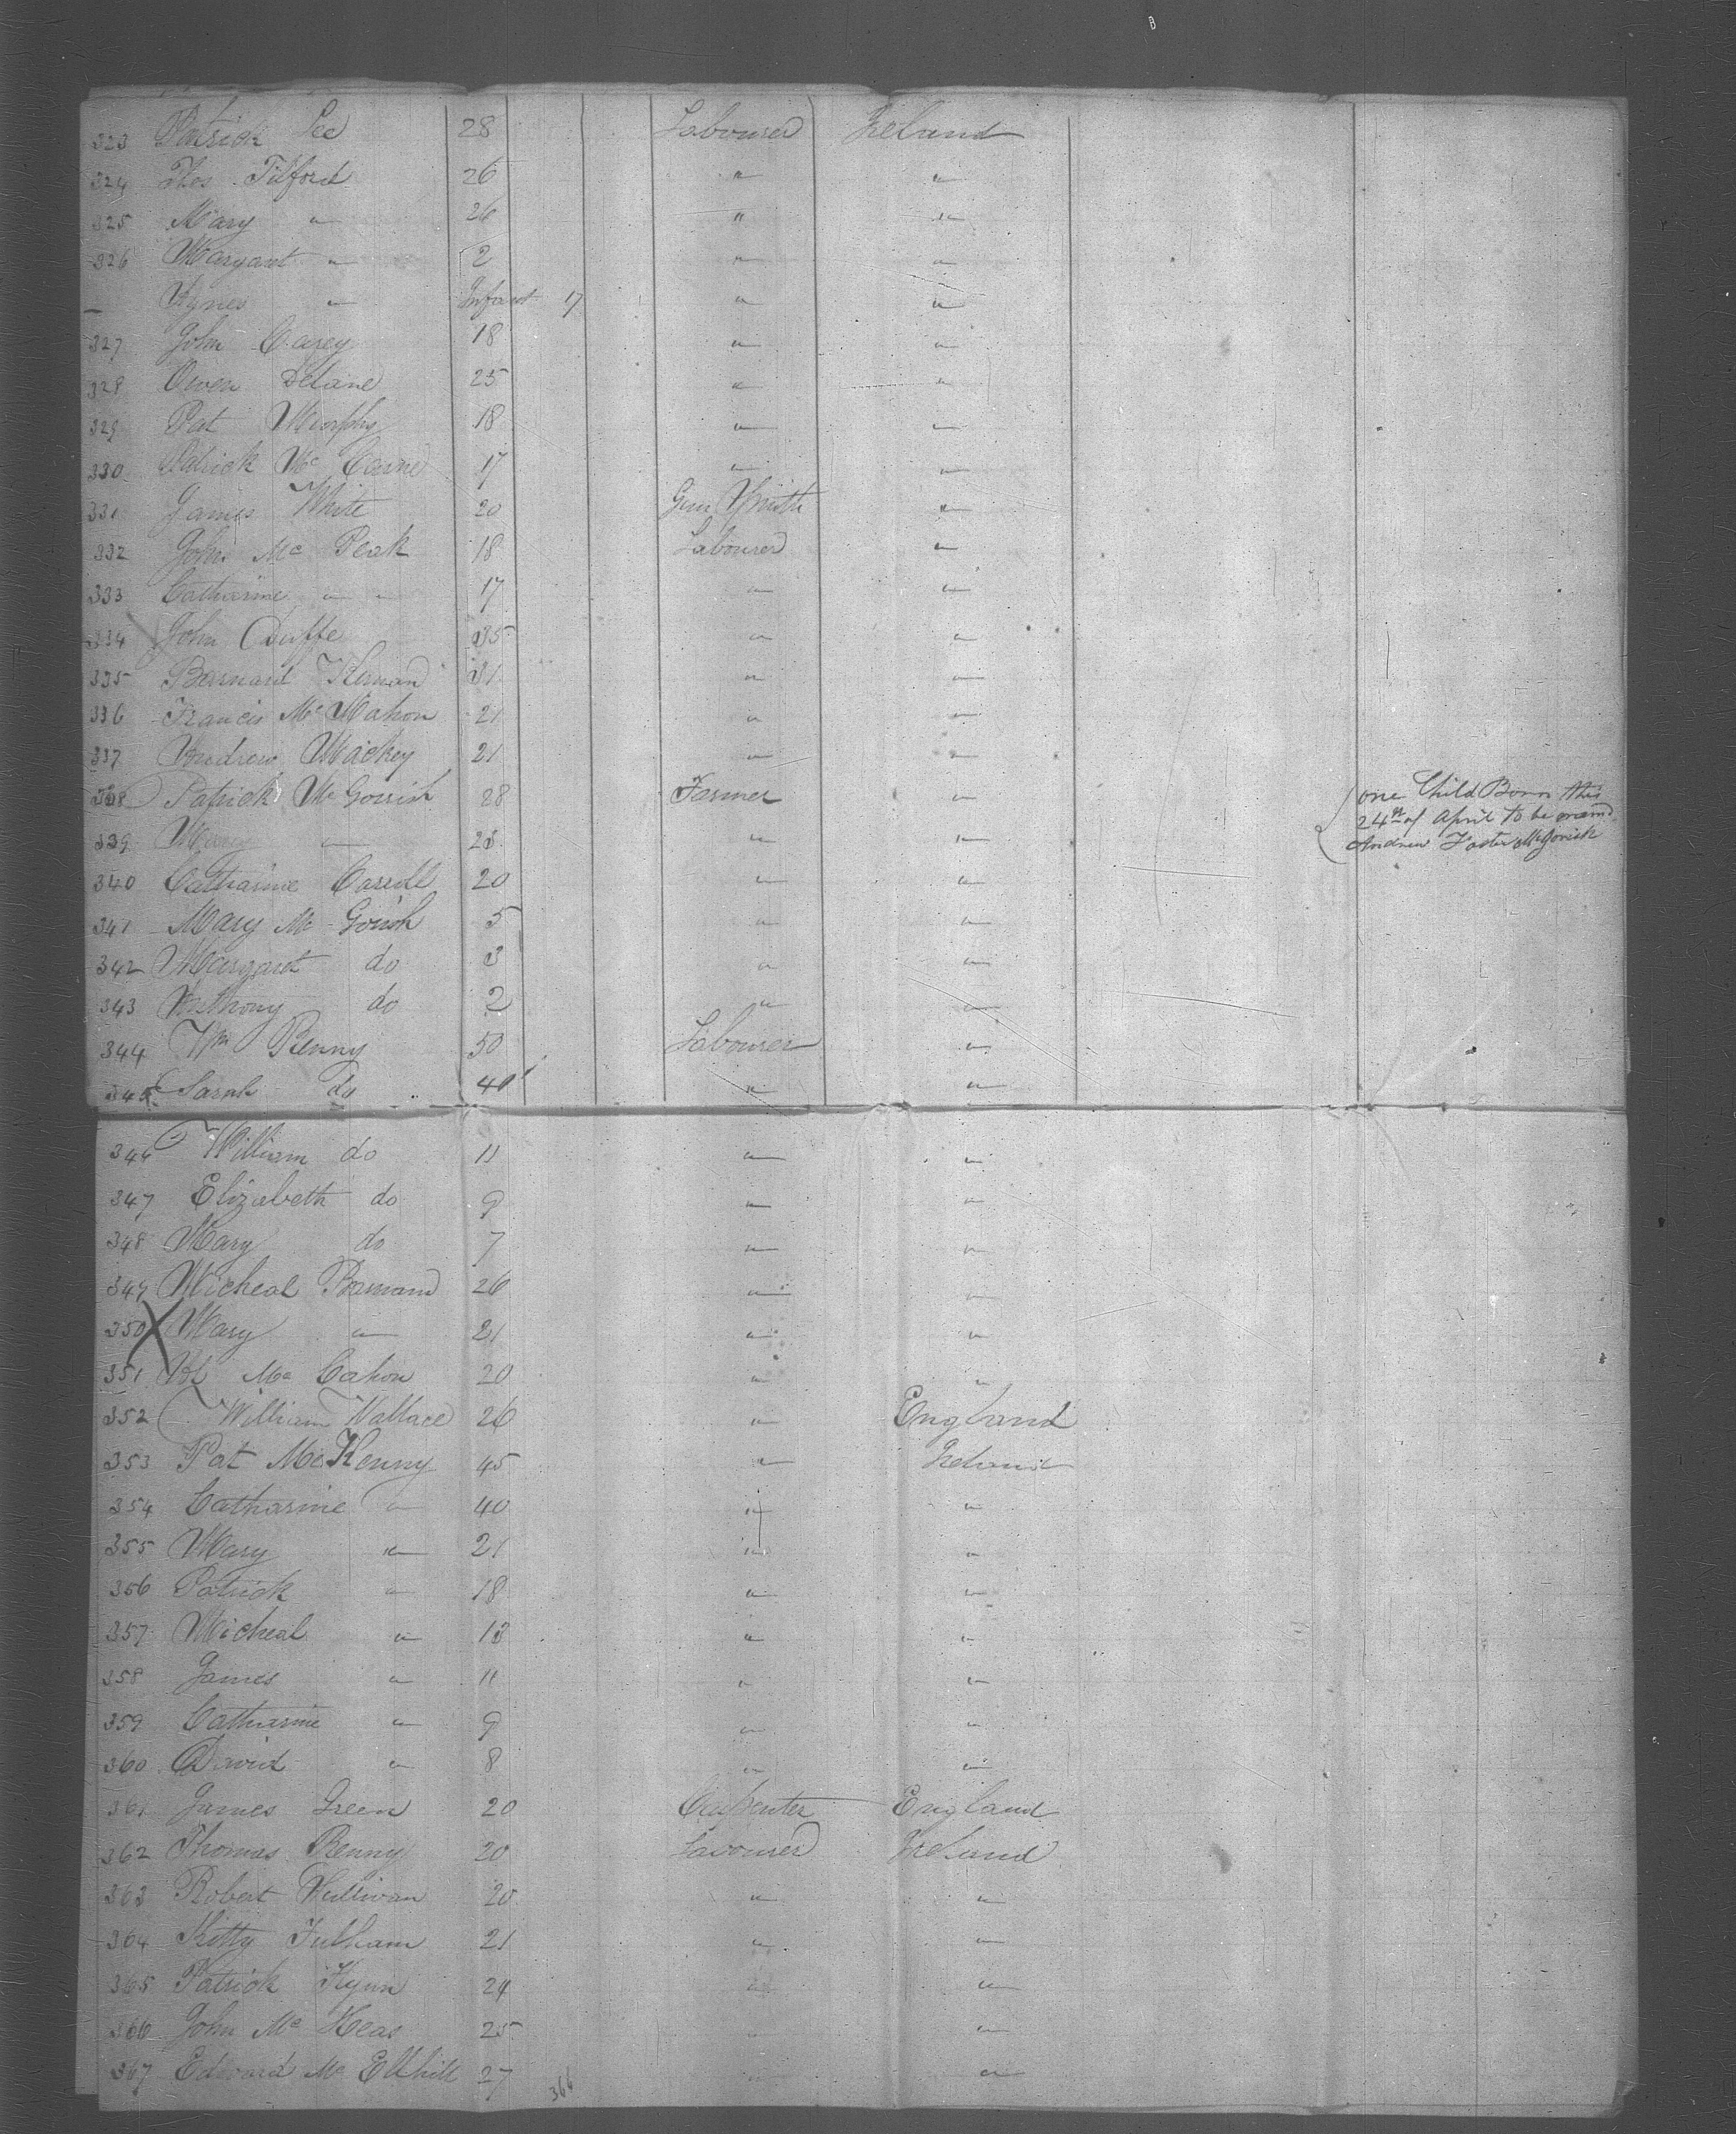 323 Patrick Lee 28 Labourer Ireland
324 Thos Tilford 26 " "
325 Mary " 26 " "
326 Margaret " 2 " "
— Agnes " Infant 17 " "
327 John Carey 18 " "
328 Owen Delane 25 " "
329 Pat Murphy 18 " "
330 Patrick Mc 17 " "
331 James White 20 Gun Smith "
332 John Mc Peak 18 Labourer "
333 Catharine " " 17 " "
334 John Duffe 35 " "
335 Barnard Kernan 31 " "
336 Francis Mc Mahon 21 " "
337 Andrew Mackey 21 " "
338 Patrick Mc Gorrish 28 Farmer " one Child Born this
24th of April to be named
Andrew Foster McGorish
339 Mary " 23 " "
340 Catharine Carroll 20 " "
341 Mary Mc Gorish 5 " "
342 Margaret do 3 " "
343 Anthony do 2 " "
344 Wm Renny 50 Labourer "
345 Sarah do 40 " "
346 William do 11 " "
347 Elizabeth do 9 " "
348 Mary do 7 " "
349 Micheal 26 " "
350 X Mary " 21 " "
351 Mc Cahon 20 " "
352 William Wallace 26 " England
353 Pat McKenny 45 " Ireland
354 Catharine " 40 " "
355 Mary " 21 " "
356 Patrick " 18 " "
357 Micheal " 13 " "
358 James " 11 " "
359 Catharine " 9 " "
360 David " 8 " "
361 James Green 20 Carpenter England
362 Thomas Renny 20 Labourer Ireland
363 Robert Sullivan 20 " "
364 Kitty Fulham 21 " "
365 Patrick Flynn 24 " "
366 John Mc Keas 25 " "
367 Edward Mc Elhill 27 " "
366